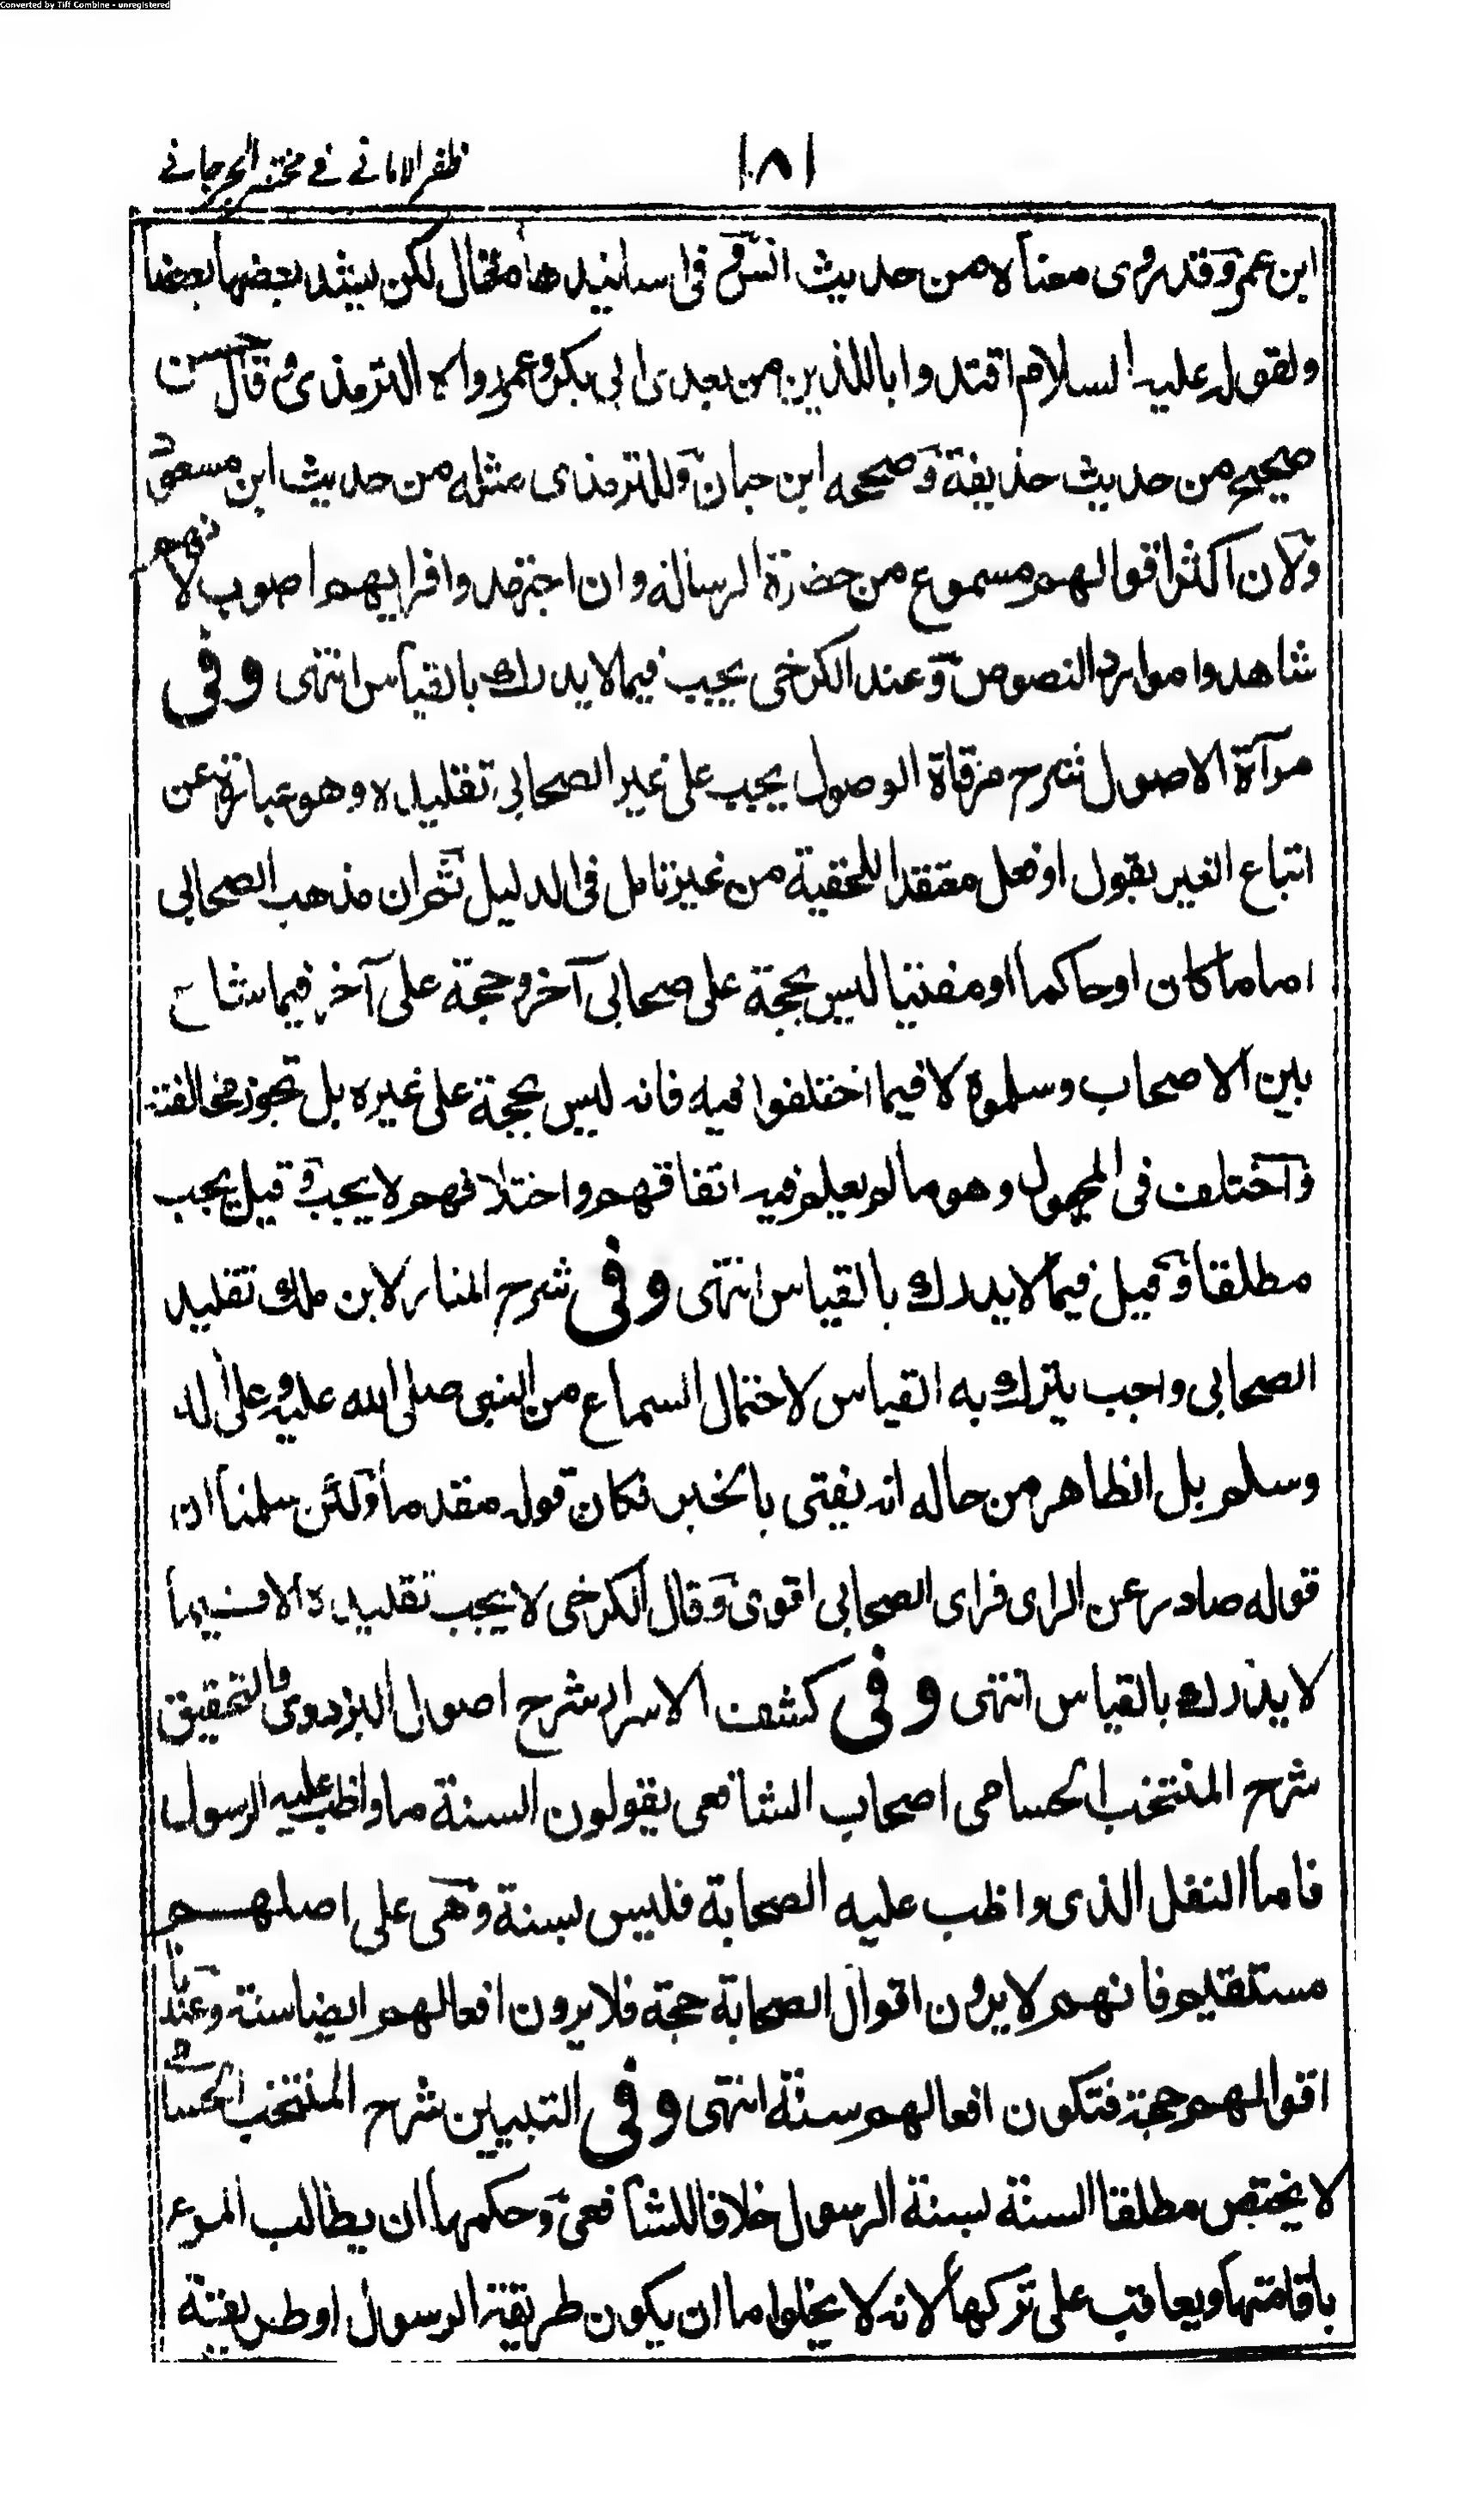 Converted by Tiff Combine - unregistered
١٨١
ظفر الامانے فے مختصر الجرجانے
ابن عمر وقد روى معناه من حديث انس وفى اسانيدها مقال لكن يشد بعضها بعضا
ولقوله عليه السلام اقتدوا باللذين من بعدى ابى بكر وعمر رواه الترمذى وقال حسن
صحيح من حديث حذيفة وصححه ابن حبان وللترمذى مثله من حديث ابن مسعود
ولان اكثر اقوالهم مسموع من حضرة الرسالة وان اجتهدوا فرايهم اصوب لانهم
شاهدوا موارد النصوص وعند الكرخى يجب فيما لا يدرك بالقياس انتهى وفى
مرآة الاصول شرح مرقاة الوصول يجب على غير الصحابى تقليده وهو عبارة عن
اتباع الغير بقول او فعل معتقدا للحقية من غير تامل فى الدليل ثم ان مذهب الصحابى
اماما كان او حاكما او مفتيا ليس بحجة على صحابى آخر وحجة على آخر فيما شاع
بين الاصحاب وسلموه لا فيما اختلفوا فيه فانه ليس بحجة على غيره بل تجوز مخالفته
واختلف فى المجهول وهو ما لم يعلم فيه اتفاقهم واختلافهم لا يجب وقيل يجب
مطلقا وقيل فيما لا يدرك بالقياس انتهى وفى شرح المنار لابن ملك تقليد
الصحابى واجب يترك به القياس لاحتمال السماع من النبى صلى الله عليه وعلى اله
وسلم بل الظاهر من حاله انه يفتى بالخبر فكان قوله مقدما ولئن سلمنا ان
قوله صادر عن الراى فراى الصحابى اقوى وقال الكرخى لا يجب تقليده الا فيما
لا يدرك بالقياس انتهى وفى كشف الاسرار شرح اصول البزدوى والتحقيق
شرح المنتخب الحسامى اصحاب الشافعى يقولون السنة ما واظب عليه الرسول
فاما النفل الذى واظب عليه الصحابة فليس بسنة وهى على اصلهم
مستقيم فانهم لا يرون اقوال الصحابة حجة فلا يرون افعالهم ايضا سنة وعندنا
اقوالهم حجة فتكون افعالهم سنة انتهى وفى التبيين شرح المنتخب الحسامى
لا يختص مطلقا السنة بسنة الرسول خلافا للشافعى وحكمها ان يطالب المرء
باقامتها ويعاقب على تركها لانه لا يخلو اما ان يكون طريقة الرسول او طريقة